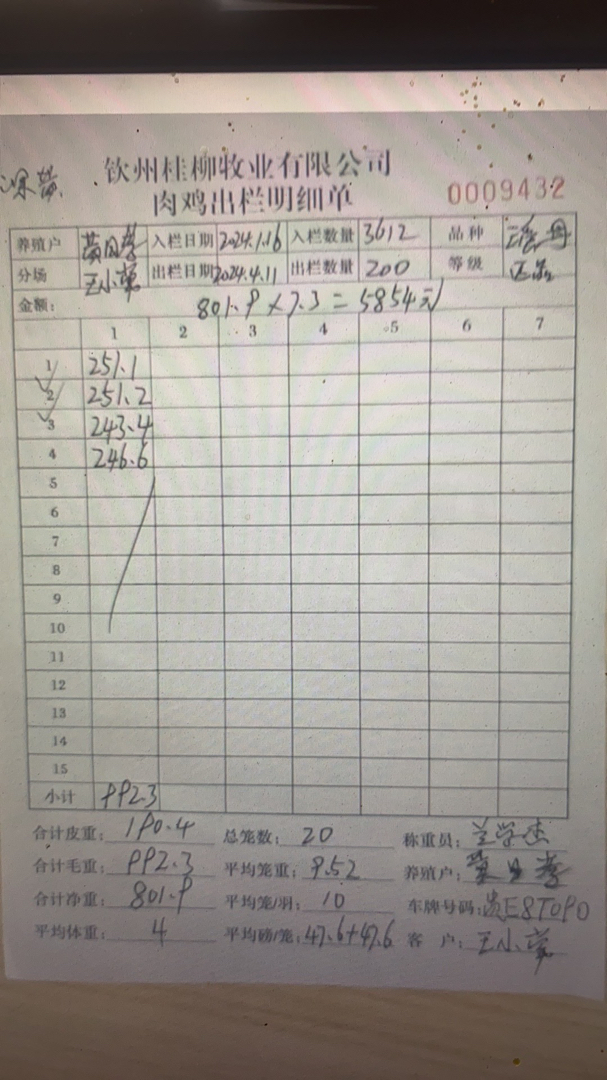 钦州桂柳牧业有限公司
肉鸡出栏明细单
0009432
养殖户 入栏日期 2024.1.16 入栏数量 3612 品种
分场 王小 出栏日期 2024.4.11 出栏数量 200 等级
金额: 801.9×7.3=5854元
1 2 3 4 5 6 7
1 251.1
2 251.2
3 243.4
4 246.6
5
6
7
8
9
10
11
12
13
14
15
小计 992.3
合计皮重: 190.4 总笼数: 20 称重员: 兰学杰
合计毛重: 992.3 平均笼重: 9.52 养殖户:
合计净重: 801.9 平均笼/羽: 10 车牌号码: 贵E8T0P0
平均体重: 4 平均磅/笼: 47.6+47.6 客户: 王小